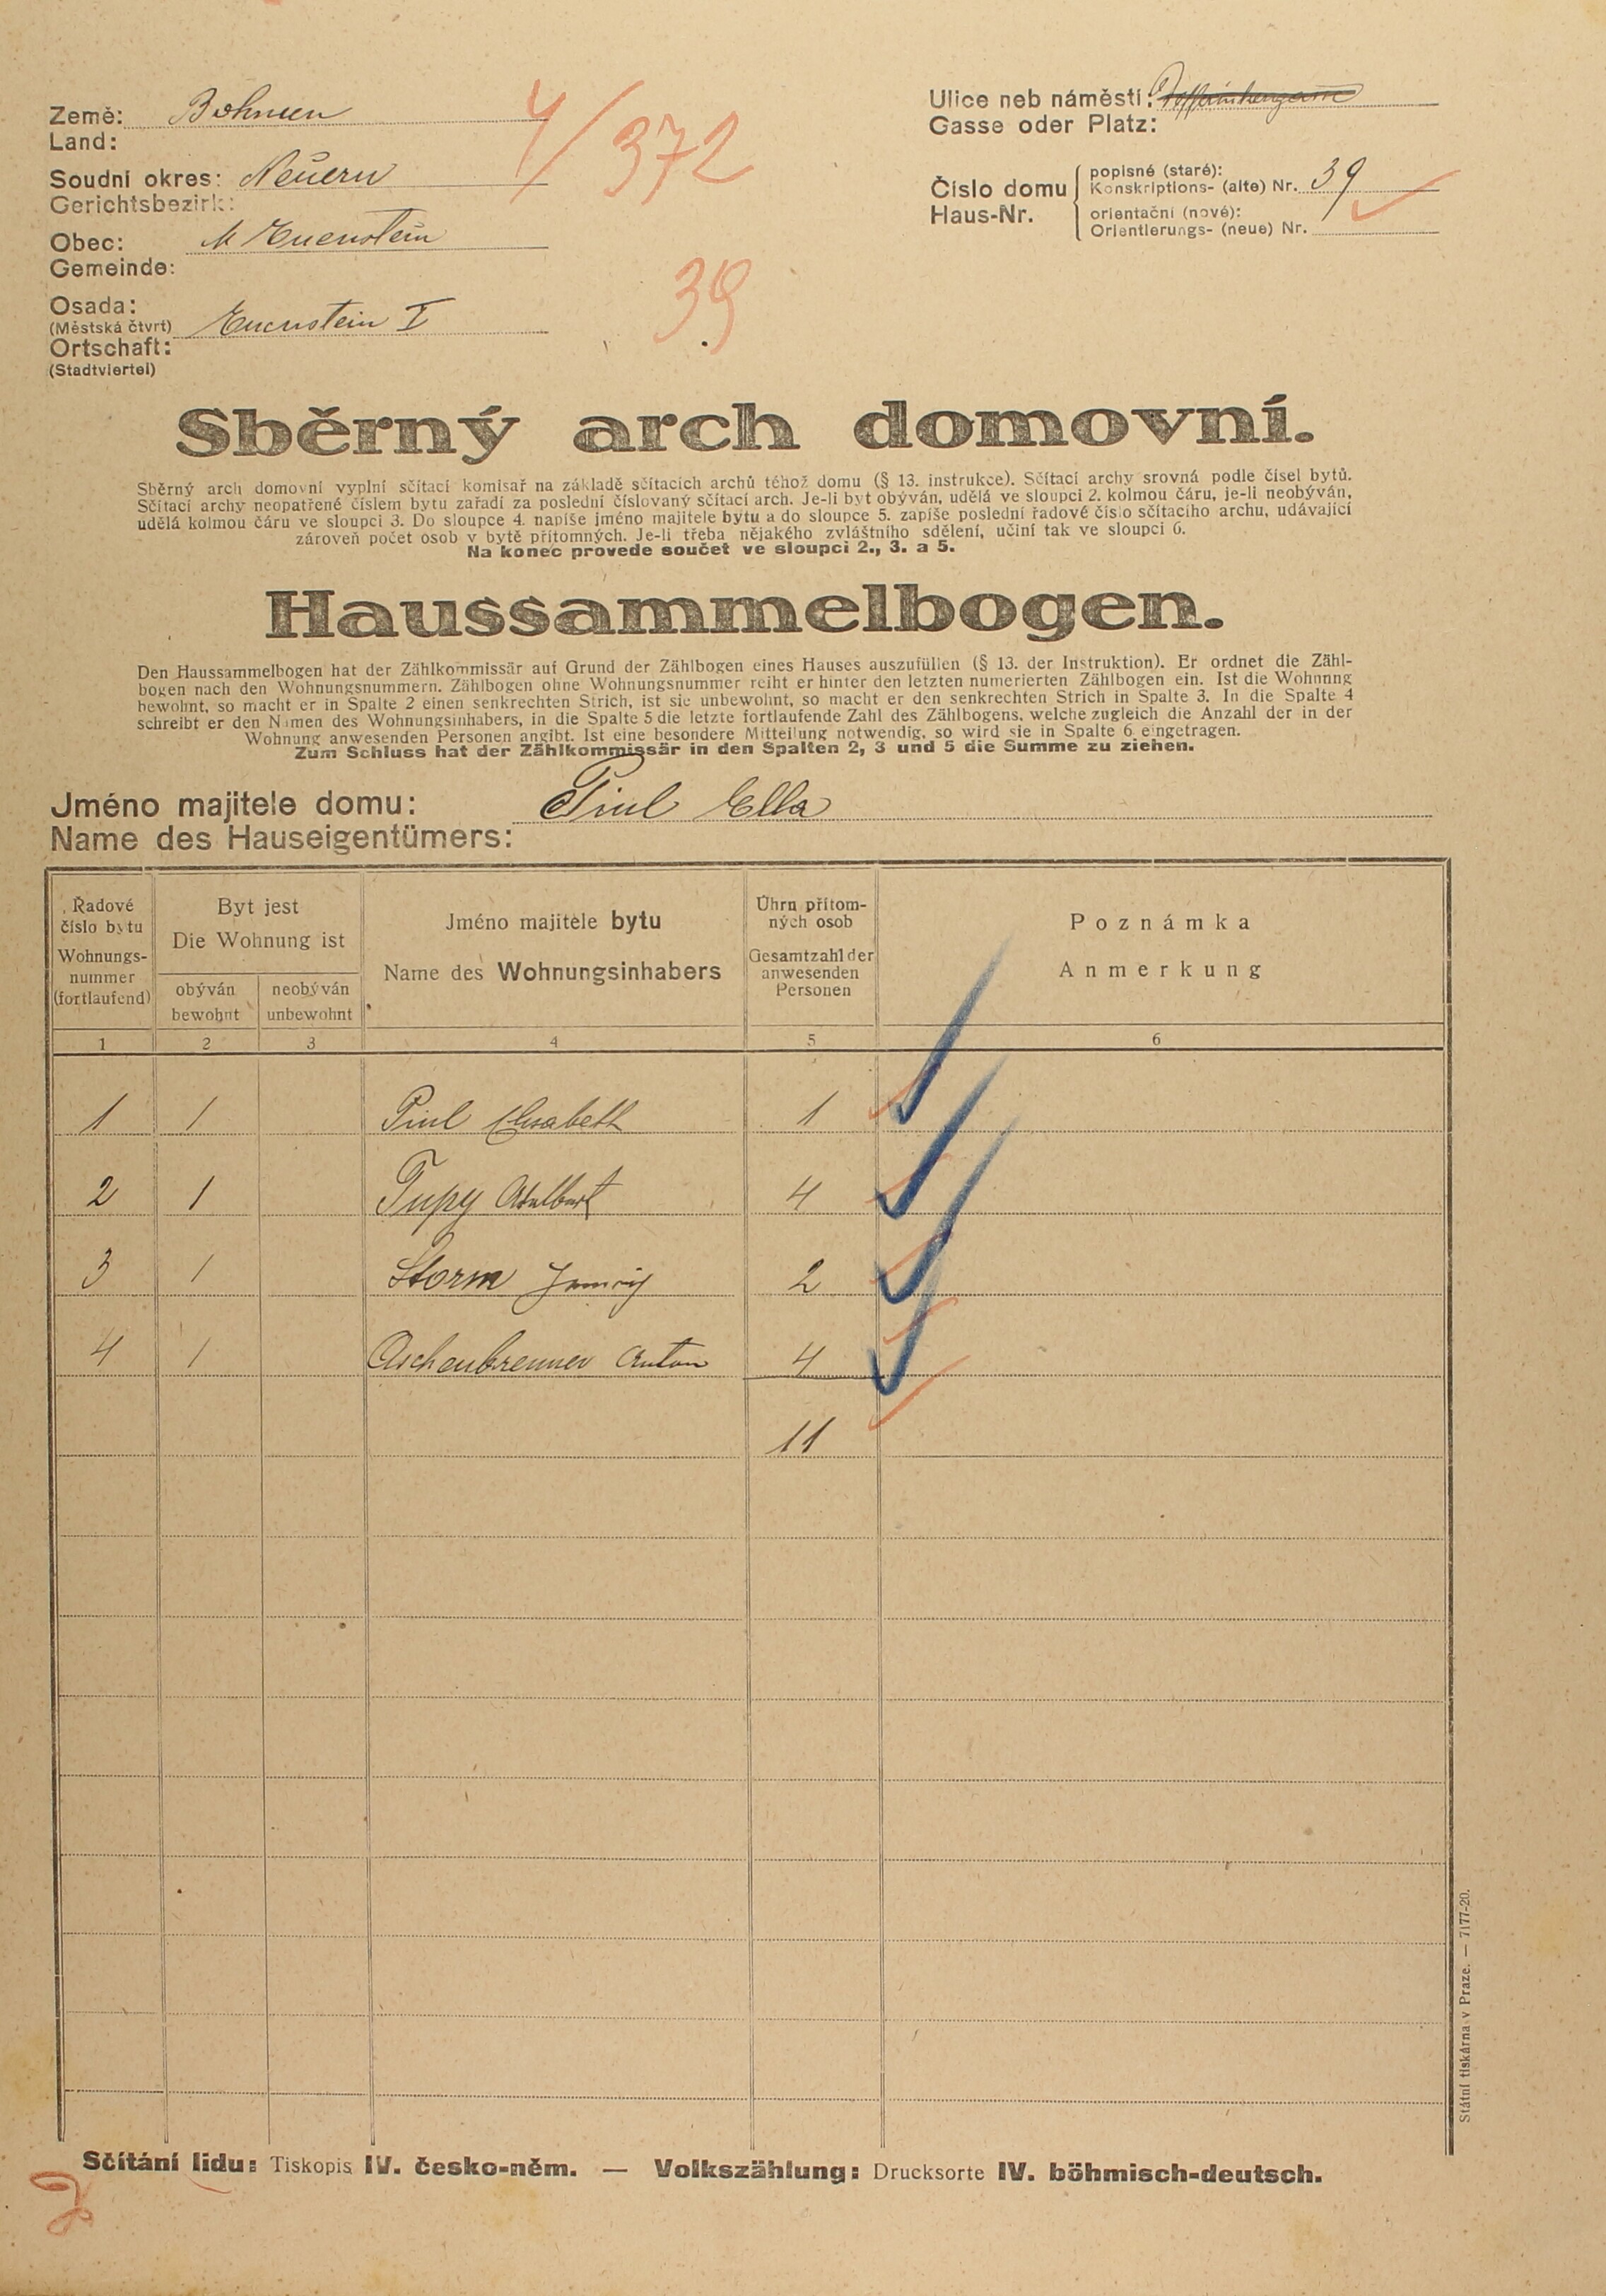 Země: Böhmen
Land:
Soudní okres: Neuern
Gerichtsbezirk:
Obec: M Eisenstein
Gemeinde:
Osada:
(Městská čtvrt) Eisenstein I
Ortschaft:
(Stadtviertel)
4/372
39
Ulice neb náměstí:
Gasse oder Platz:
Číslo domu
Haus-Nr.
popisné (staré):
Konskriptions- (alte) Nr. 39
orientační (nové):
Orientierungs- (neue) Nr.
Sběrný arch domovní.
Sběrný arch domovní vyplní sčítací komisař na základě sčítacích archů téhož domu (§ 13. instrukce). Sčítací archy srovná podle čísel bytů.
Sčítací archy neopatřené číslem bytu zařadí za poslední číslovaný sčítací arch. Je-li byt obýván, udělá ve sloupci 2. kolmou čáru, je-li neobýván,
udělá kolmou čáru ve sloupci 3. Do sloupce 4. napíše jméno majitele bytu a do sloupce 5. zapíše poslední řadové číslo sčítacího archu, udávající
zároveň počet osob v bytě přítomných. Je-li třeba nějakého zvláštního sdělení, učiní tak ve sloupci 6.
Na konec provede součet ve sloupci 2., 3. a 5.
Haussammelbogen.
Den Haussammelbogen hat der Zählkommissär auf Grund der Zählbogen eines Hauses auszufüllen (§ 13. der Instruktion). Er ordnet die Zähl-
bogen nach den Wohnungsnummern. Zählbogen ohne Wohnungsnummer reiht er hinter den letzten numerierten Zählbogen ein. Ist die Wohnung
bewohnt, so macht er in Spalte 2 einen senkrechten Strich, ist sie unbewohnt, so macht er den senkrechten Strich in Spalte 3. In die Spalte 4
schreibt er den Namen des Wohnungsinhabers, in die Spalte 5 die letzte fortlaufende Zahl des Zählbogens, welche zugleich die Anzahl der in der
Wohnung anwesenden Personen angibt. Ist eine besondere Mitteilung notwendig, so wird sie in Spalte 6 eingetragen.
Zum Schluss hat der Zählkommissär in den Spalten 2, 3 und 5 die Summe zu ziehen.
Jméno majitele domu: Ella
Name des Hauseigentümers:
Řadové
číslo bytu
Wohnungs-
nummer
(fortlaufend)
Byt jest
Die Wohnung ist
obýván
bewohnt
neobýván
unbewohnt
Jméno majitele bytu
Name des Wohnungsinhabers
Úhrn přítom-
ných osob
Gesamtzahl der
anwesenden
Personen
Poznámka
Anmerkung
1 2 3 4 5 6
1 / Elisabeth 1
2 1 Tupy Adalbert 4
3 / Storm 2
4 / Aschenbrenner Anton 4
11
Sčítání lidu: Tiskopis IV. česko-něm. — Volkszählung: Drucksorte IV. böhmisch-deutsch.
Státní tiskárna v Praze. — 7177-20.